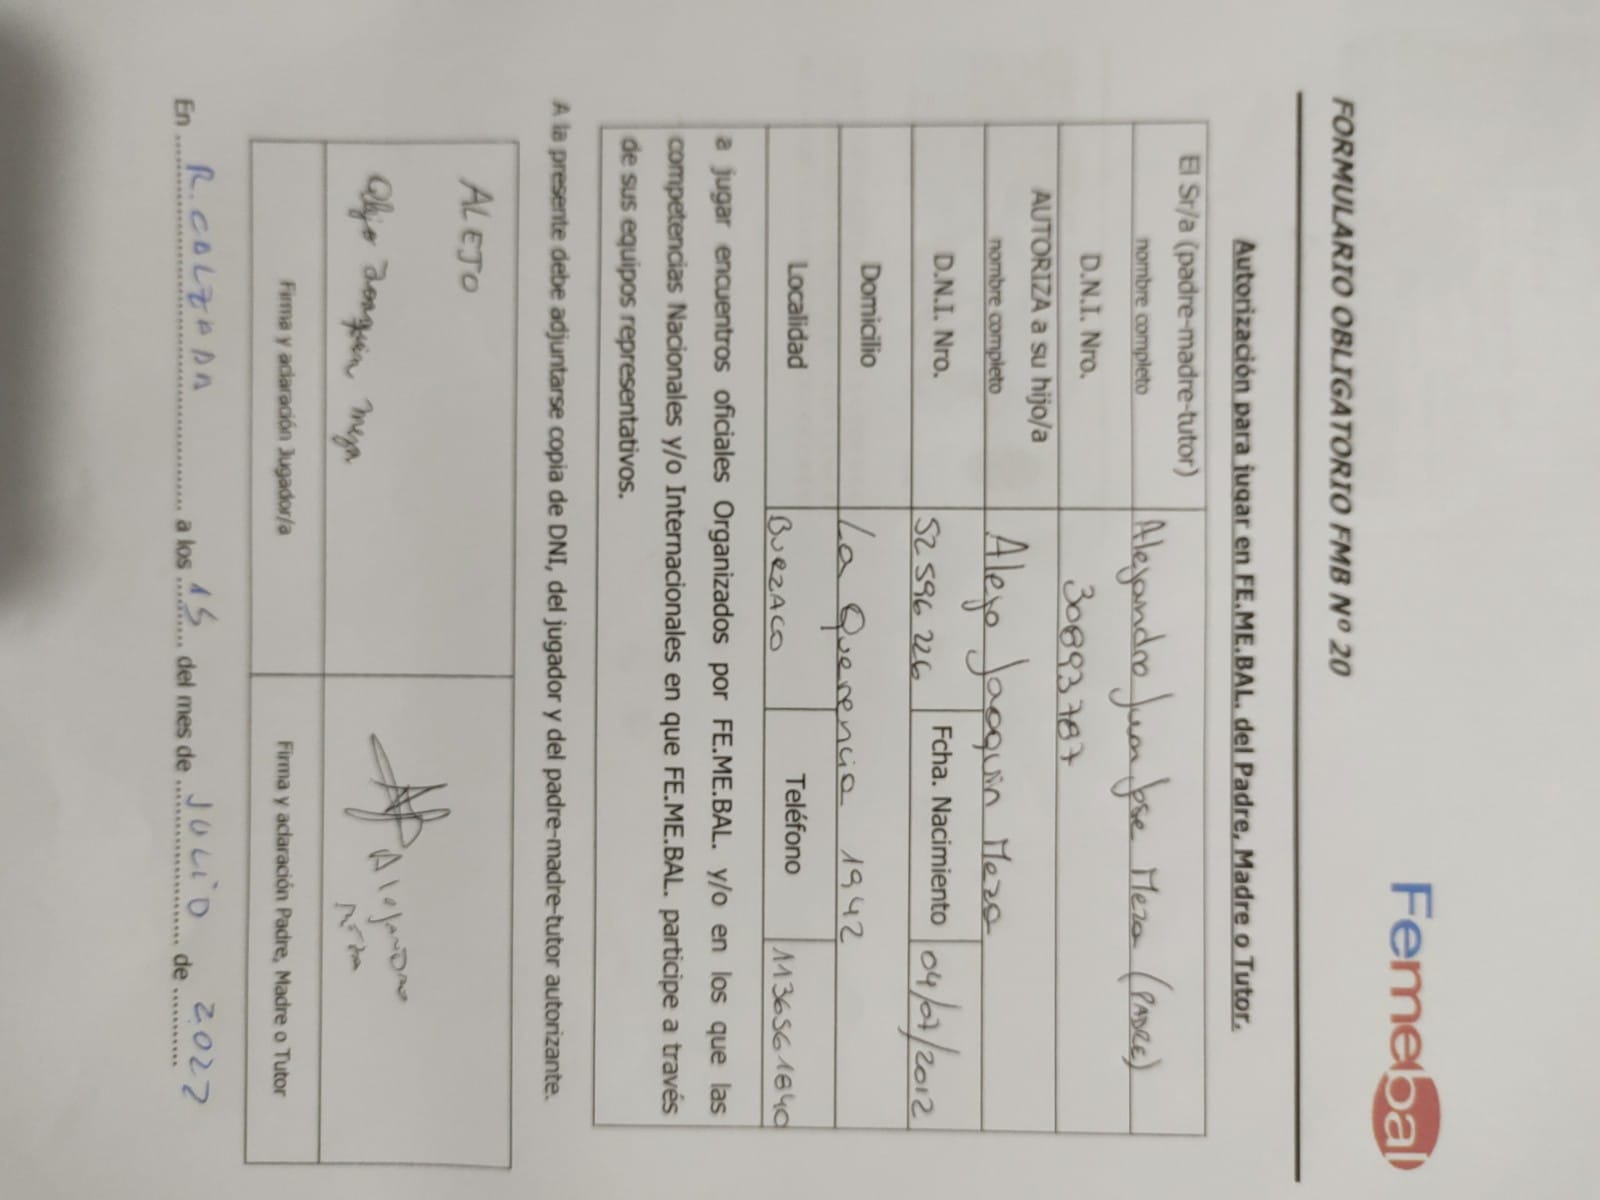 Femebal
FORMULARIO OBLIGATORIO FMB Nº 20
Autorización para jugar en FE.ME.BAL. del Padre, Madre o Tutor.
El Sr/a (padre-madre-tutor)
nombre completo
Alejandro Juan Jose Meza (PADRE)
D.N.I. Nro.
30893787
AUTORIZA a su hijo/a
nombre completo
Alejo Joaquin Meza
D.N.I. Nro.
52 596 226
Fcha. Nacimiento
04/07/2012
Domicilio
La Querencia 1942
Localidad
BURZACO
Teléfono
1136561840
a jugar encuentros oficiales Organizados por FE.ME.BAL. y/o en los que las
competencias Nacionales y/o Internacionales en que FE.ME.BAL. participe a través
de sus equipos representativos.
A la presente debe adjuntarse copia de DNI, del jugador y del padre-madre-tutor autorizante.
ALEJO
Alejo Joaquin Meza
Alejandro
Meza
Firma y aclaración Jugador/a
Firma y aclaración Padre, Madre o Tutor
En R. CALZADA a los 15 del mes de JULIO de 2022